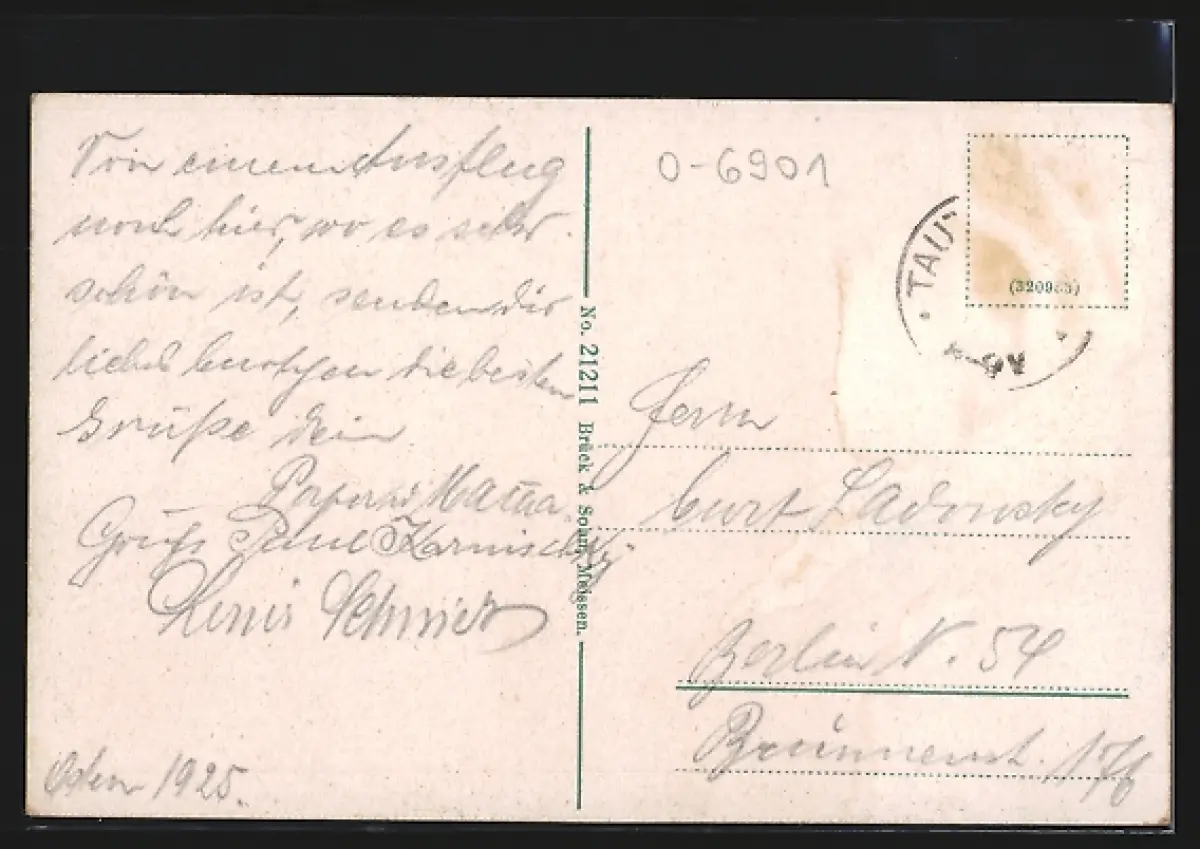 Von einem Ausflug
noch hier, wo es sehr
schön ist, senden dir
liebes Curtchen die besten
Grüße dein
Papa und Mama.
Gruß Paul
Schmidt
Ostern 1925.
No. 21211 Brück & Sohn, Meissen.
0-6901
(320985)
TAU
Herrn
Curt Ladonsky
Berlin N. 54
Brunnenst.